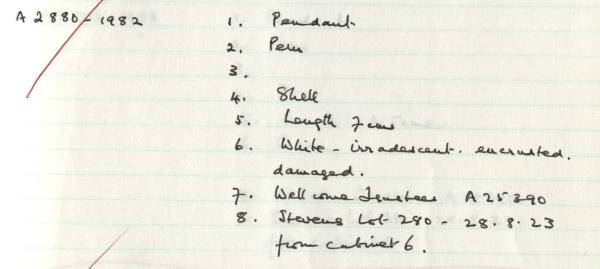 A 2880 - 1982 1. Pendant
2. Peru
3.
4. Shell
5. Length 7 cms
6. White - irradescent. encrusted.
damaged.
7. Wellcome Trustees A 25390
8. Stevens Lot 280 - 28.8.23
from cabinet 6.